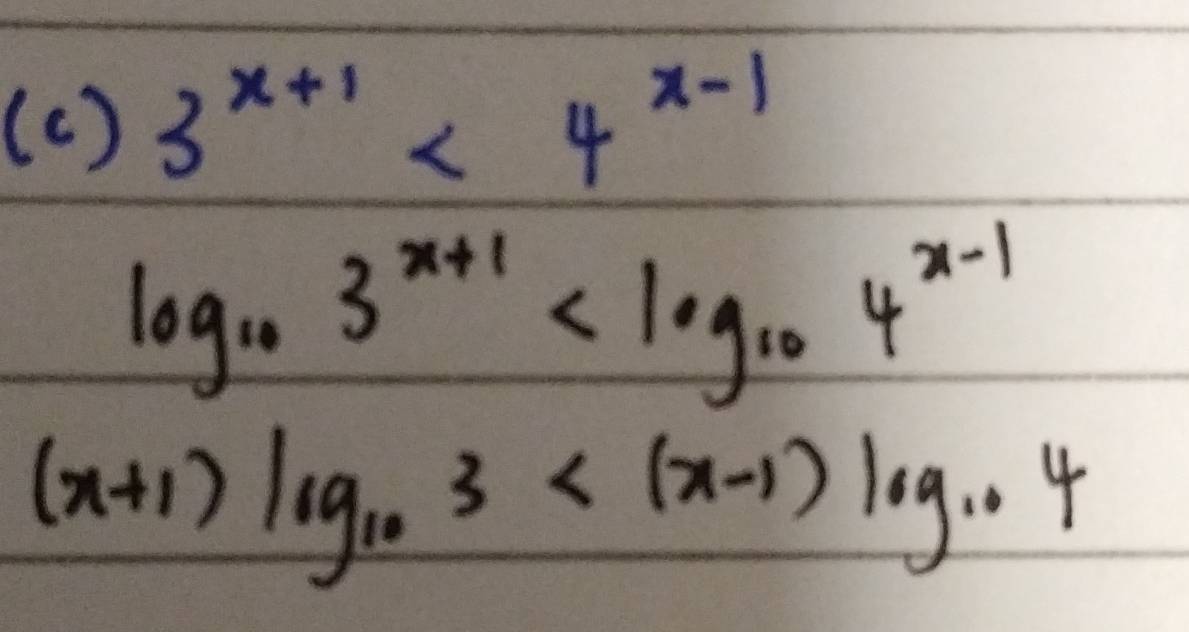 (c) 3^{x+1} < 4^{x-1}
log₁₀ 3^{x+1} < log₁₀ 4^{x-1}
(x+1) log₁₀ 3 < (x-1) log₁₀ 4